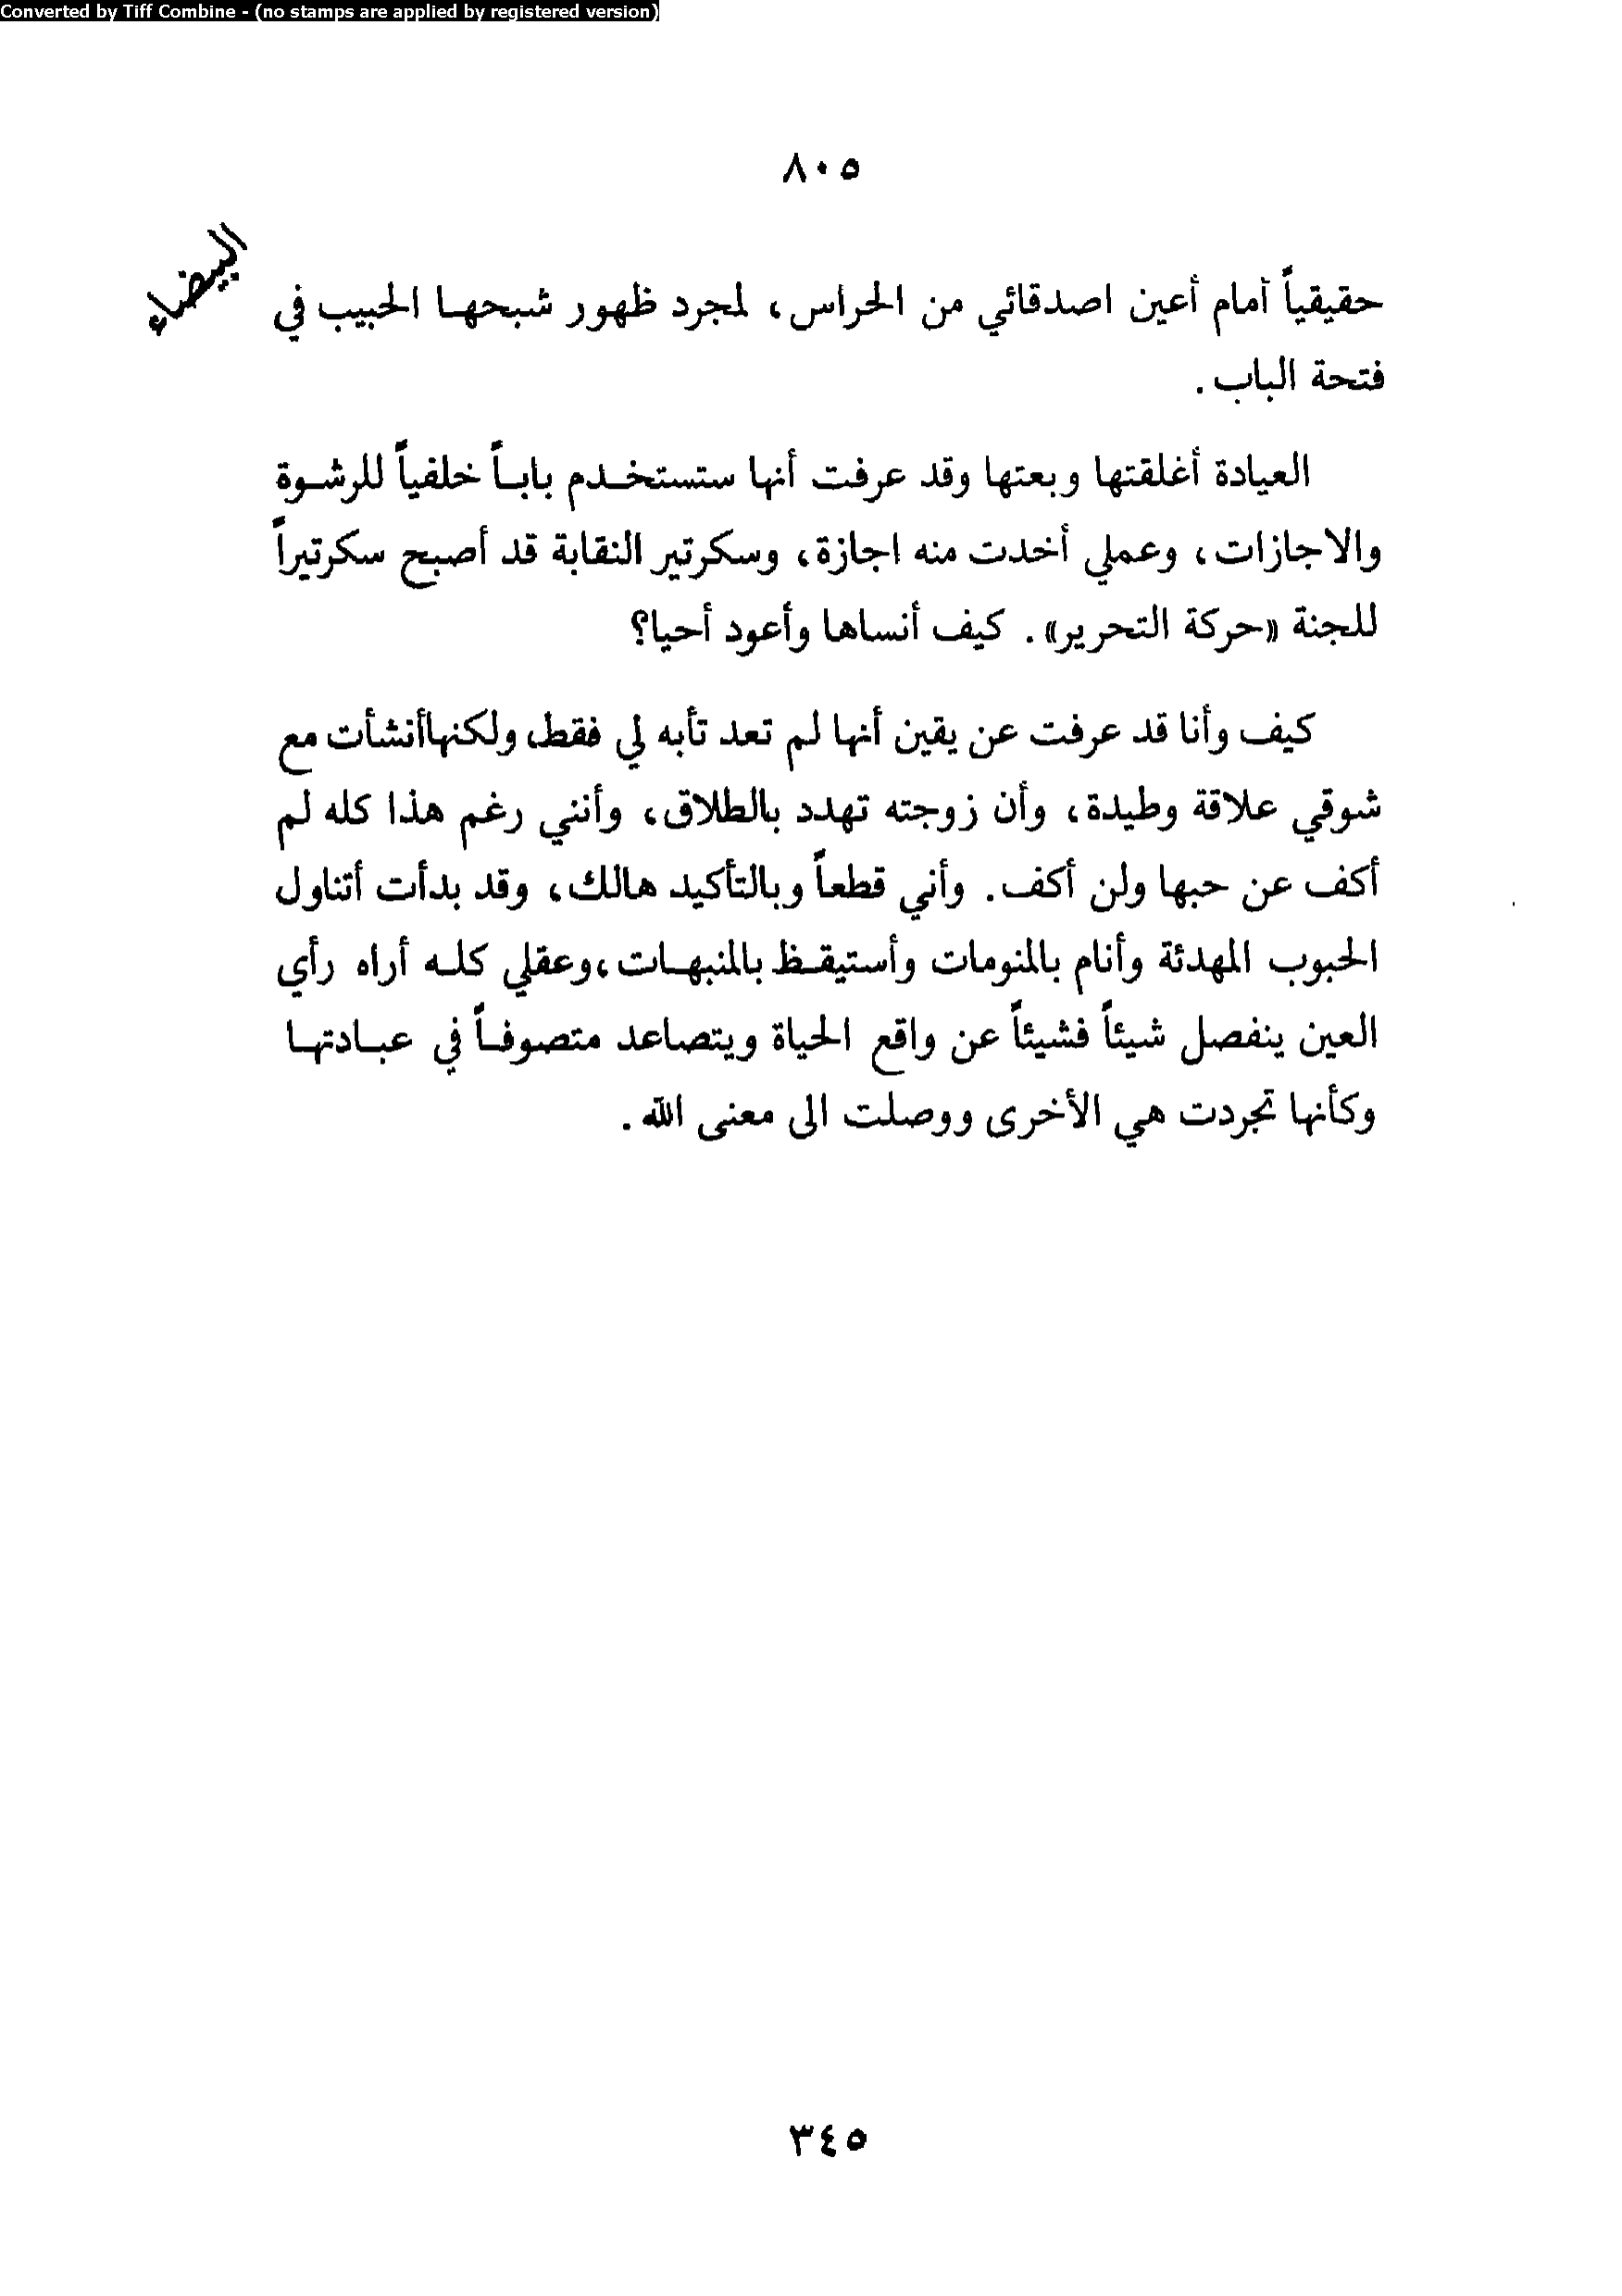 Converted by Tiff Combine - (no stamps are applied by registered version)
٨٠٥
البيضاء
حقيقياً أمام أعين اصدقائي من الحراس، لمجرد ظهور شبحها الحبيب في
فتحة الباب.
العيادة أغلقتها وبعتها وقد عرفت أنها ستستخدم باباً خلفياً للرشوة
والاجازات، وعملي أخدت منه اجازة، وسكرتير النقابة قد أصبح سكرتيراً
للجنة «حركة التحرير». كيف أنساها وأعود أحيا؟
كيف وأنا قد عرفت عن يقين أنها لم تعد تأبه لي فقط، ولكنهاأنشأت مع
شوقي علاقة وطيدة، وأن زوجته تهدد بالطلاق، وأنني رغم هذا كله لم
أكف عن حبها ولن أكف. وأني قطعاً وبالتأكيد هالك، وقد بدأت أتناول
الحبوب المهدئة وأنام بالمنومات وأستيقظ بالمنبهات،وعقلي كله أراه رأي
العين ينفصل شيئاً فشيئاً عن واقع الحياة ويتصاعد متصوفاً في عبادتها
وكأنها تجردت هي الأخرى ووصلت الى معنى الله.
٣٤٥